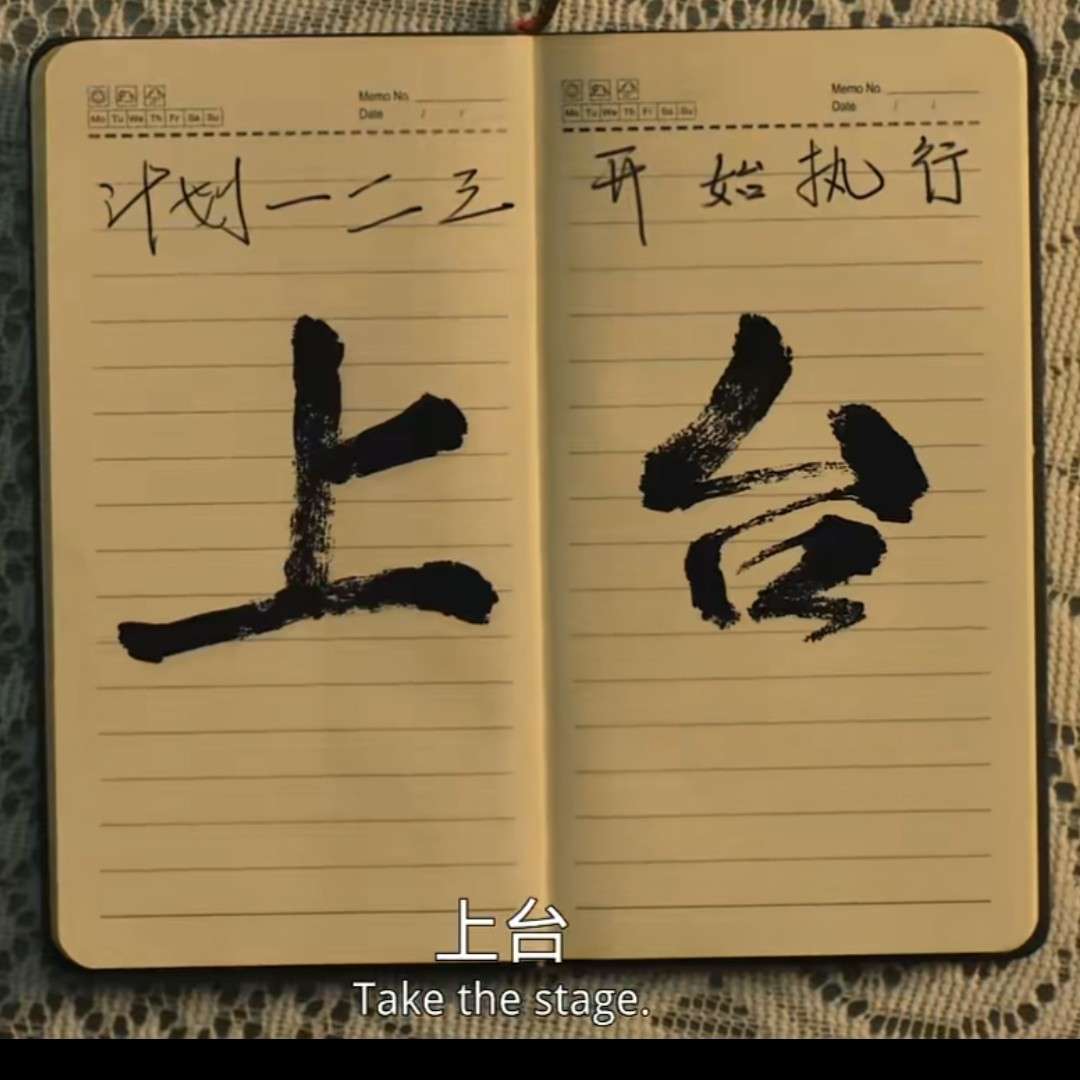 Memo No.
Date / /
Mo Tu We Th Fr Sa Su
计划一二三
上
Memo No.
Date / /
Mo Tu We Th Fr Sa Su
开始执行
台
上台
Take the stage.